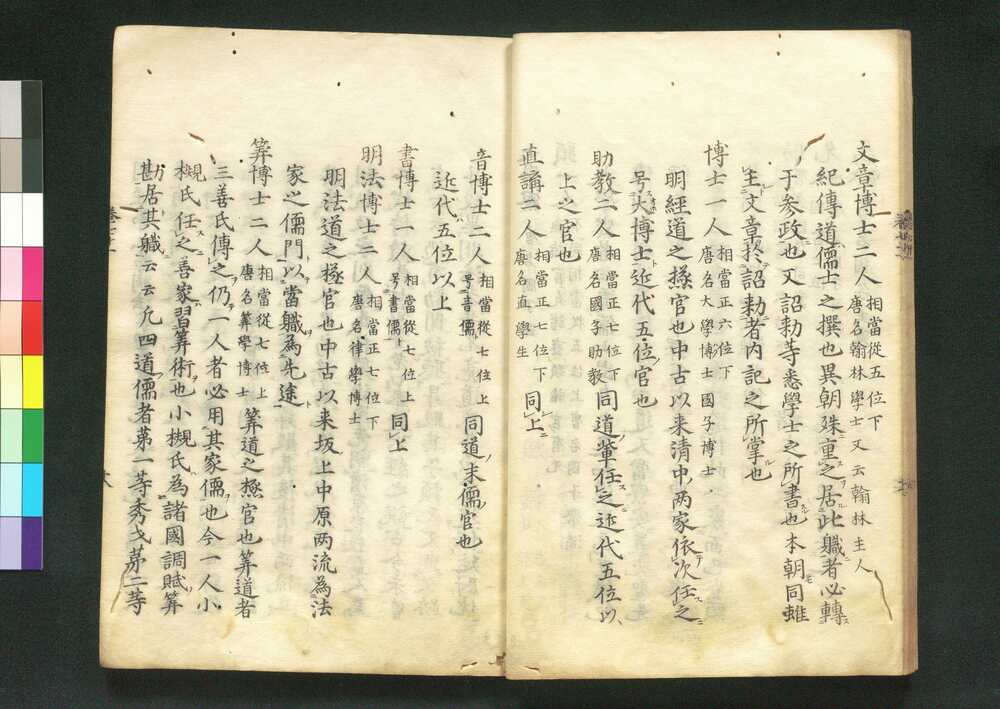 文章博士二人 相當從五位下
唐名翰林學士又云翰林主人
紀傳道儒士之撰也異朝殊重之居此軄者必轉
于参政也又詔勅等悉學士之所書也本朝同雖
主文章於詔勅者内記之所掌也
博士一人 相當正六位下
唐名大學博士國子博士
明經道之極官也中古以来清中两家依次任之
号大博士近代五位官也
助教二人 相當正七位下
唐名國子助教 同道輩任之近代五位以
上之官也
直講二人 相當正七位下
唐名直學生 同上
音博士二人 相當從七位上
号音儒 同道末儒官也
近代五位以上
書博士二人 相當從七位上
号書儒 同上
明法博士二人 相當正七位下
唐名律學博士
明法道之極官也中古以来坂上中原两流為法
家之儒門以當軄為先途
筭博士二人 相當從七位上
唐名筭學博士 筭道之極官也筭道者
三善氏傳之仍一人者必用其家儒也今一人小
槻氏任之善家習筭術也小槻氏為諸國調賦筭
勘居其軄云云凢四道儒者第一等秀才第二等